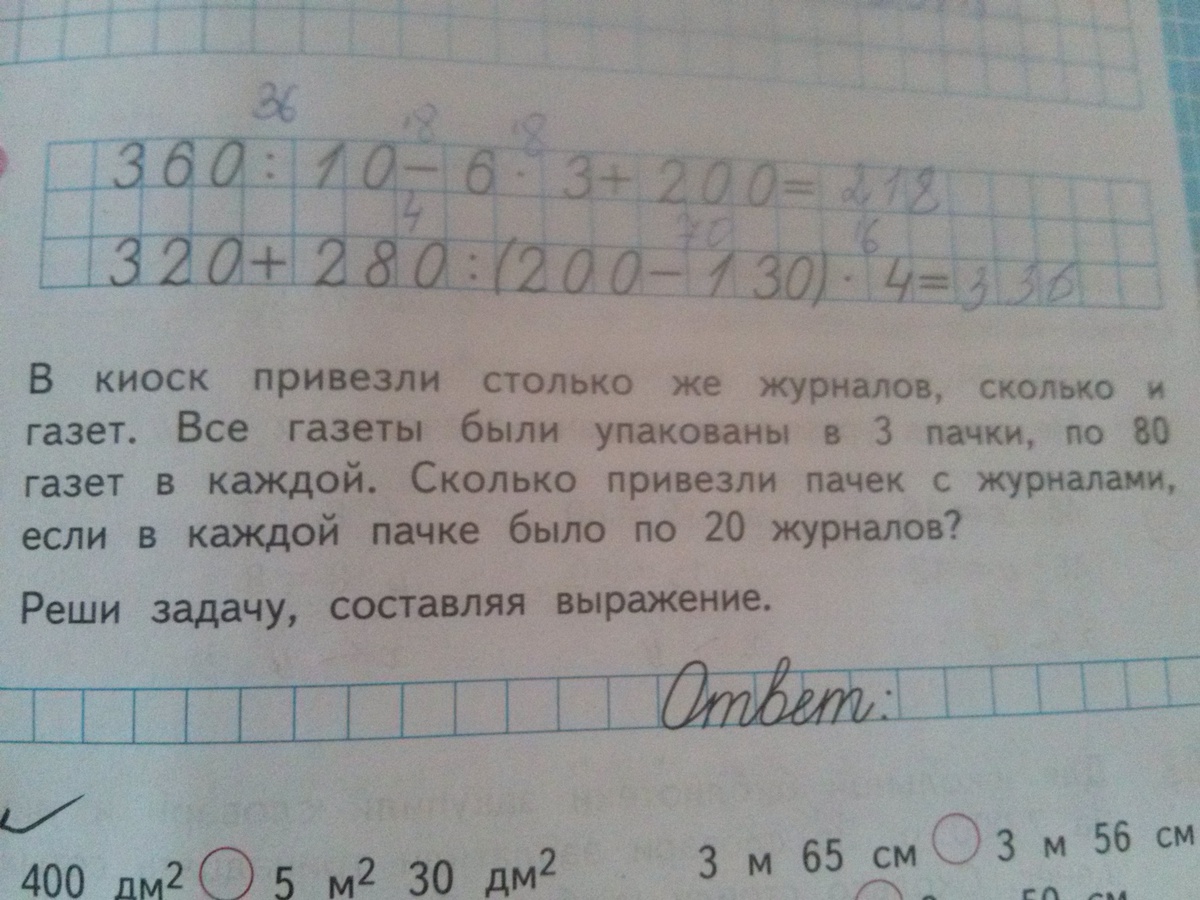 36
18 18
360 : 10 − 6 · 3 + 200 = 218
4 70 16
320 + 280 : (200 − 130) · 4 = 336
В киоск привезли столько же журналов, сколько и
газет. Все газеты были упакованы в 3 пачки, по 80
газет в каждой. Сколько привезли пачек с журналами,
если в каждой пачке было по 20 журналов?
Реши задачу, составляя выражение.
Ответ:
400 дм² 5 м² 30 дм²
3 м 65 см 3 м 56 см